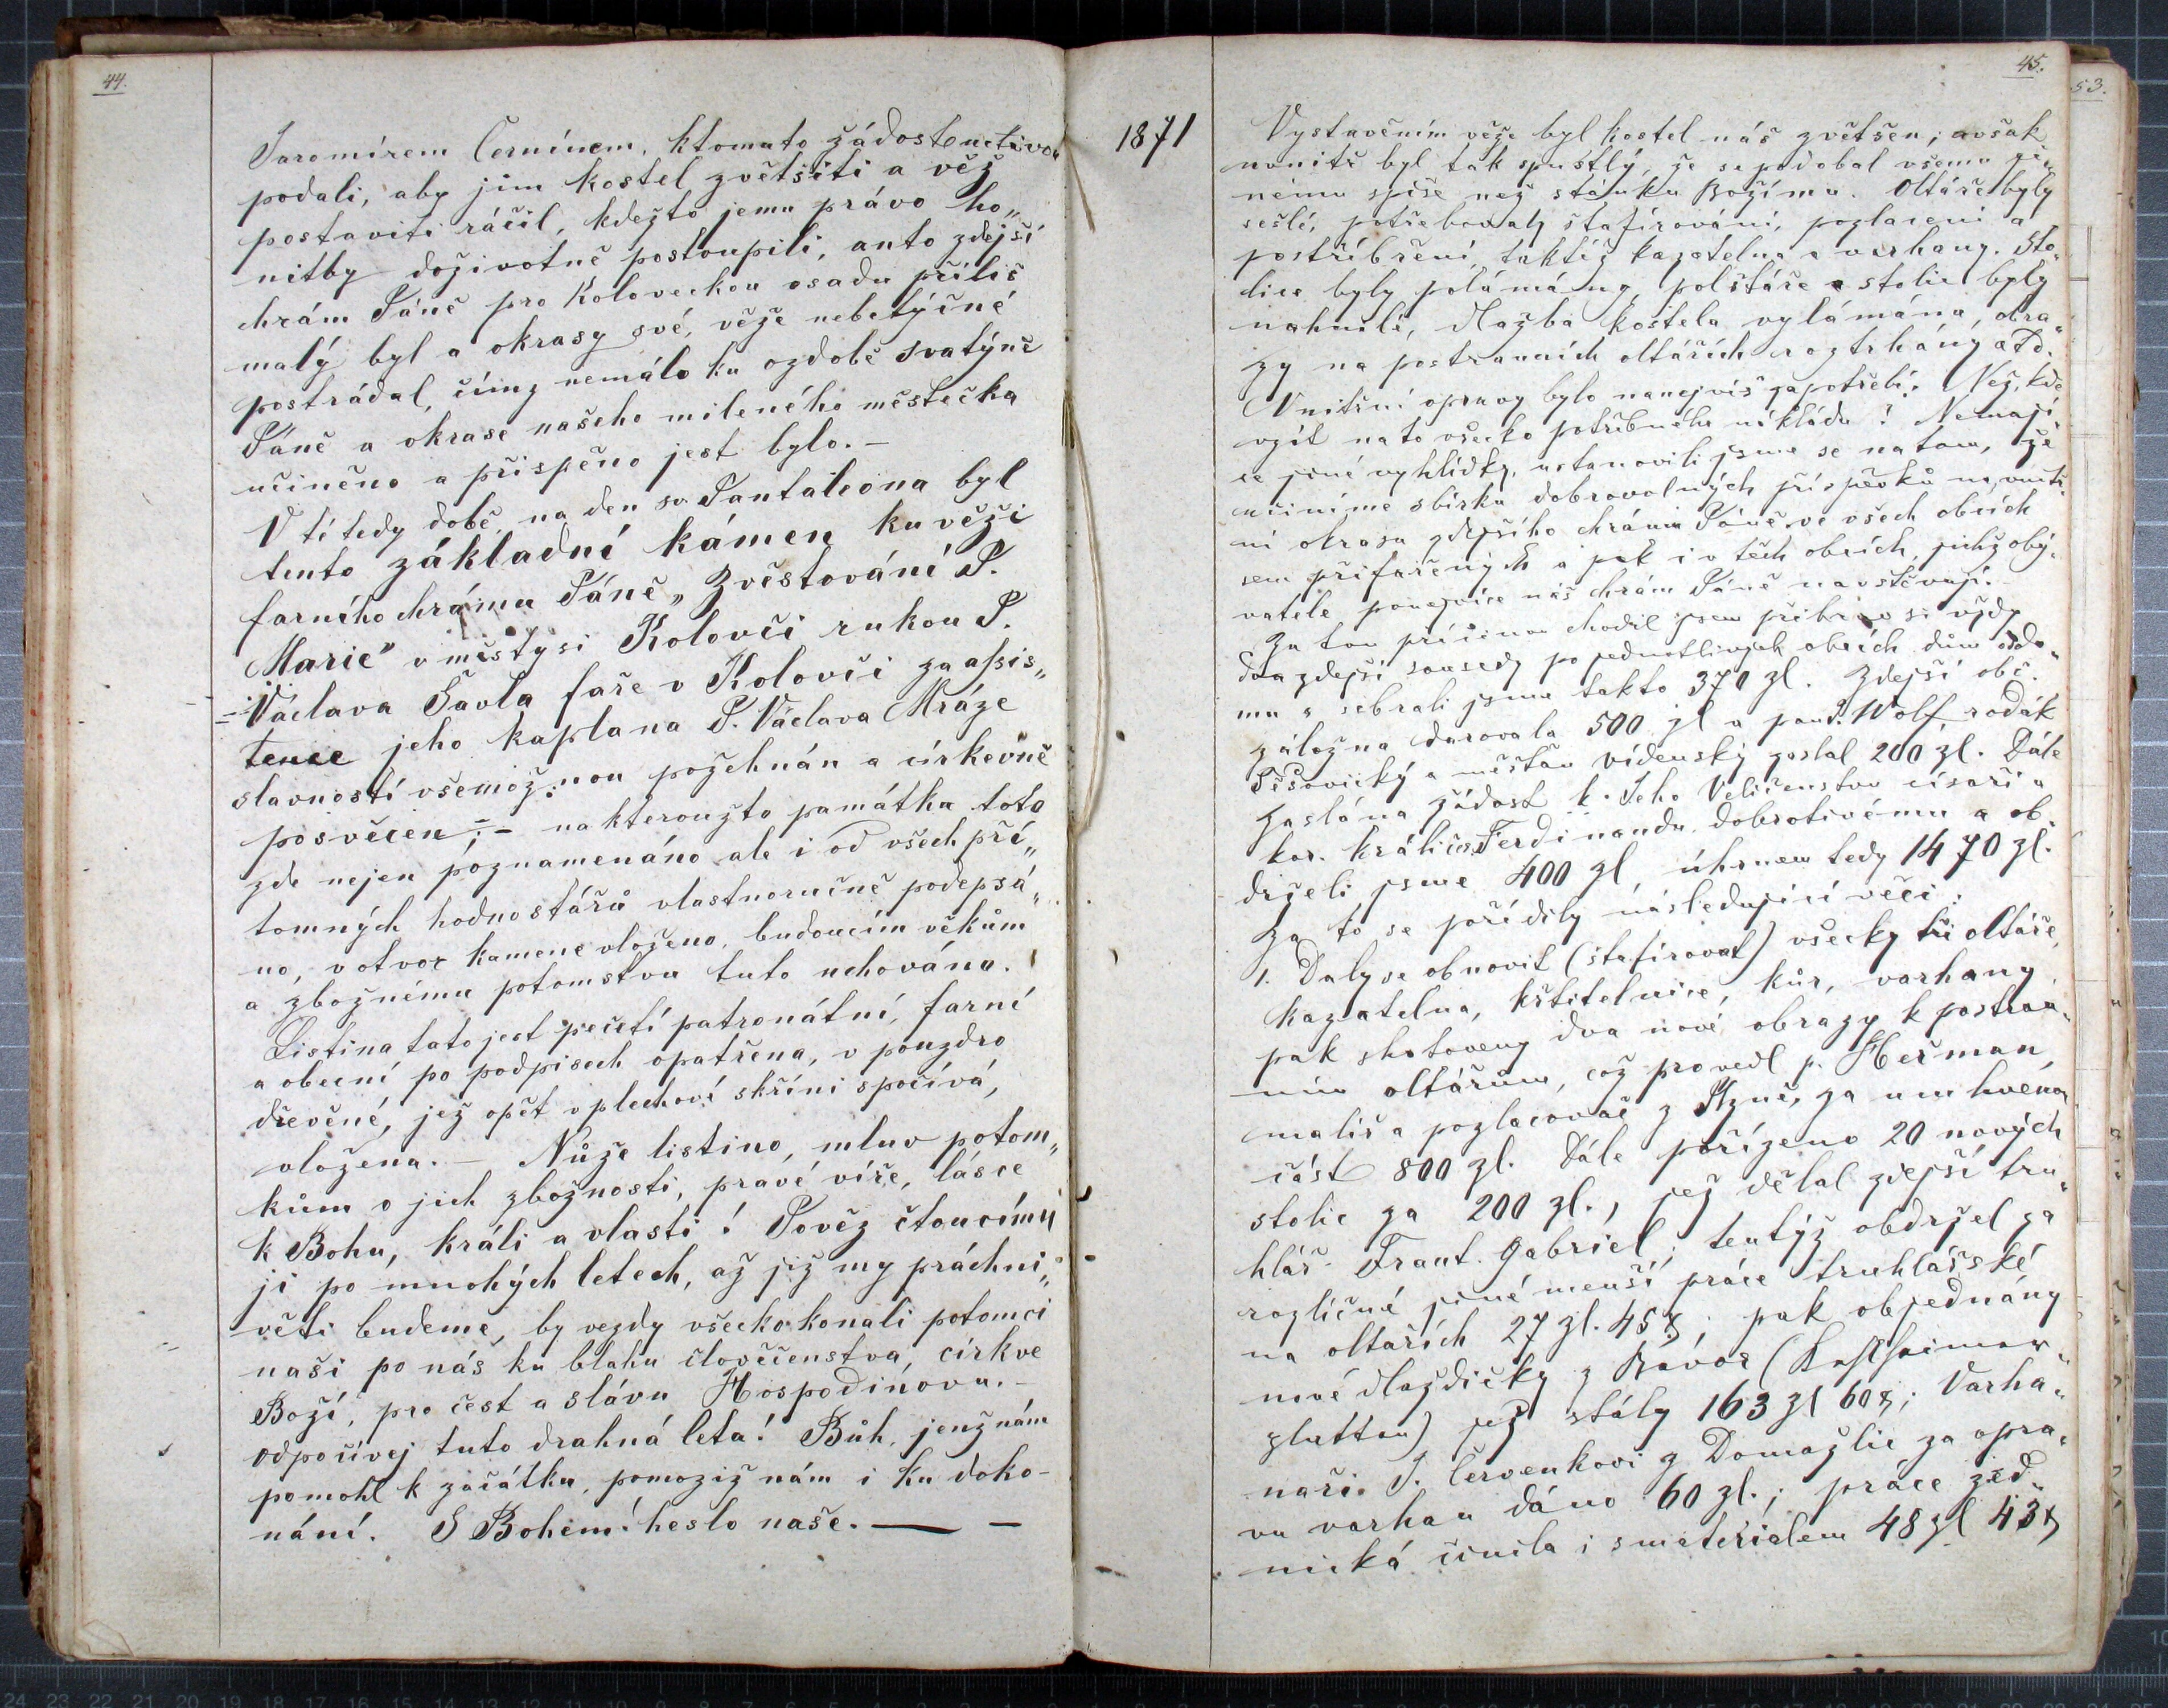 44.
Jaromírem Černínem, ktomuto žádost uctivou
podali, aby jim kostel zvětšiti a věž
postaviti ráčil, kdežto jemu právo ho„
nitby doživotně postoupili, anto zdejší
chrám Páně pro Koloveckou osadu příliš
malý byl a okrasy své, věže nebetyčné
postrádal, čímz nemálo ku ozdobě svatýně
Páně a okrase našeho mileného městečka
učiněno a přispěno jest bylo. –
V té tedy době, na den sv Pantaleóna byl
tento základní kámen ku věži
farního chrámu Páně „Zvěstování P.
Marie" v městysi Kolovči rukou P.
Václava Šavla faře v Kolovči za assis„
tence jeho kaplana P. Václava Mráze
slavností všemožnou požehnán a církevně
posvěcen; – na kteroužto památku toto
zde nejen poznamenáno ale i od všech pří„
tomných hodnostářů vlastnoručně podepsá„
no, v otvor kamene vloženo, budoucím věkům
a zbožnému potomstvu tuto uchováno.
Listina tato jest pečetí patronátní, farní
a obecní po podpisech opatřena, v pouzdro
dřevěné, jež opět v plechové skříni spočívá,
vložena. – Nuže listino, mluv potom„
kům o jich zbožnosti, pravé víře, lásce
k Bohu, králi a vlasti! Pověz čtoucímu
ji po mnohých letech, až již my práchni„
věti budeme, by vezdy všecko konali potomci
naši po nás ku blahu člověčenstva, církve
Boží, pro čest a slávu Hospodinovu. –
Odpočívej tuto drahná leta! Bůh, jenž nám
pomohl k začátku, pomoziž nám i ku doko-
nání. S Bohem! heslo naše. — –
1871
45.
53.
Vystavěním věže byl kostel náš zvětšen; avšak
uvnitř byl tak spustlý, že se podobal všemu ji„
nému spíše než stánku Božímu. Oltáře byly
sešlé, potřebovaly štafírování, pozlacení a
postříbření, taktéž kazatelna a varhany. Sto„
lice byly polámány, polštáře a stolic byly
nahnilé, dlažba kostela vylámána, obra„
zy na postranních oltářích roztrhány atd.
Vnitřní opravy bylo nanejvíš zapotřebí. Než, kde
vzít na to všecko potřebného nákladu? Nemají
ce jiné vyhlídky, ustanovili jsme se na tom, že
učiníme sbírku dobrovolných příspěvků na vnitř
ní okrasu zdejšího chrámu Páně ve všech obcích
sem přifařených a pak i v těch obcích, jichž oby„
vatelé ponejvíce náš chrám Páně navštěvují.
Za tou příčinou chodil jsem přibrav si vždy
dva zdejší sousedy po jednotlivých obcích dům od do„
mu a sebrali jsme takto 370 zl. Zdejší obč.
záložna darovala 500 zl a pan Wolf rodák
a měšťan vídenský zaslal 200 zl. Dále
zaslána žádost k Jeho Veličenstvu císaři a
kor. králi Ferdinandu dobrotivému a ob„
drželi jsme 400 zl úhrnem tedy 1470 zl.
Za to se pořídily následující věci:
1. Daly se obnovit (štafírovat) všecky tři oltáře,
kazatelna, křtitelnice, kůr, varhany
pak shotoveny dva nové obrazy k postran„
ním oltářům, což provedl p. Heřman,
malíř a pozlacovač z Plzně, za umluvenou
část 800 zl. Dále pořízeno 20 nových
stolic za 200 zl., jež dělal zdejší tru„
hlář Frant. Gabriel; tentýž obdržel za
rozličné jiné menší práce truhlářské
na oltařích 27 zl. 45 x; pak objednány
nové dlaždičky z Bavor (Kehlheimer„
platten) jež stály 163 zl 60 x; Varha„
náři J. Červenkovi z Domažlic za opra„
vu varhan dáno 60 zl.; práce zed„
nická činila i smateriálem 48 zl 43 x